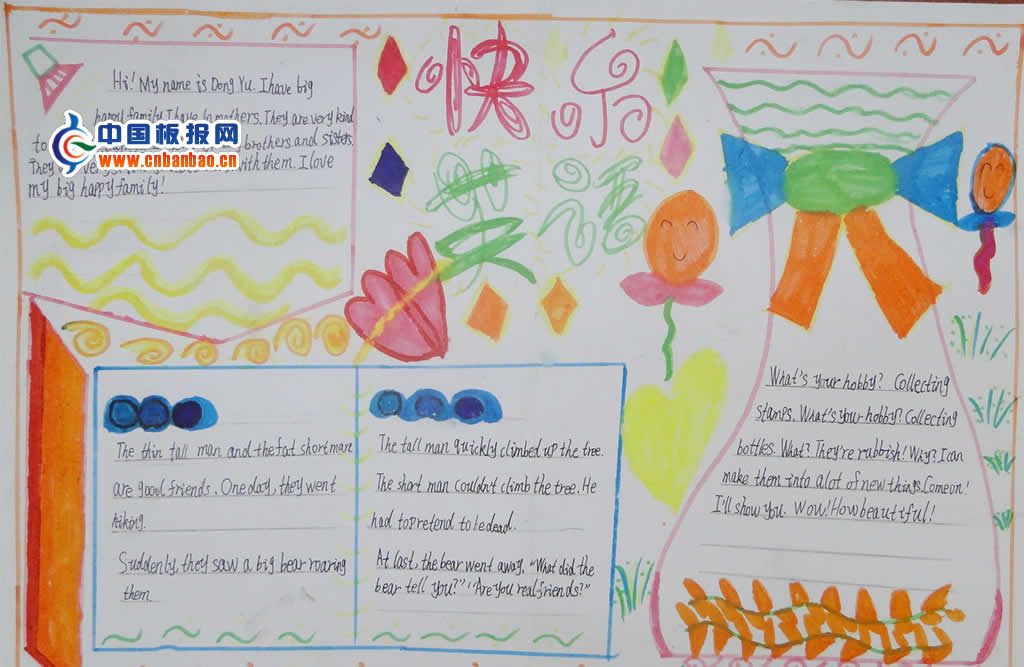 快乐
英语
Hi! My name is Dong Yu. I have big
happy family. I have mothers. They are very kind
to brothers and sisters.
They with them. I love
my big happy family!
中国板报网
www.cnbanbao.cn
The thin tall man and the fat short man
are good friends. One day, they went
hiking.
Suddenly, they saw a big bear roaring
them.
The tall man quickly climbed up the tree.
The short man couldn't climb the tree. He
had to pretend to be dead.
At last, the bear went away. "What did the
bear tell you?" "Are you real friends?"
What's your hobby? Collecting
stamps. What's your hobby? Collecting
bottles. What? They're rubbish! Why? I can
make them into a lot of new things. Come on!
I'll show you. Wow! How beautiful!